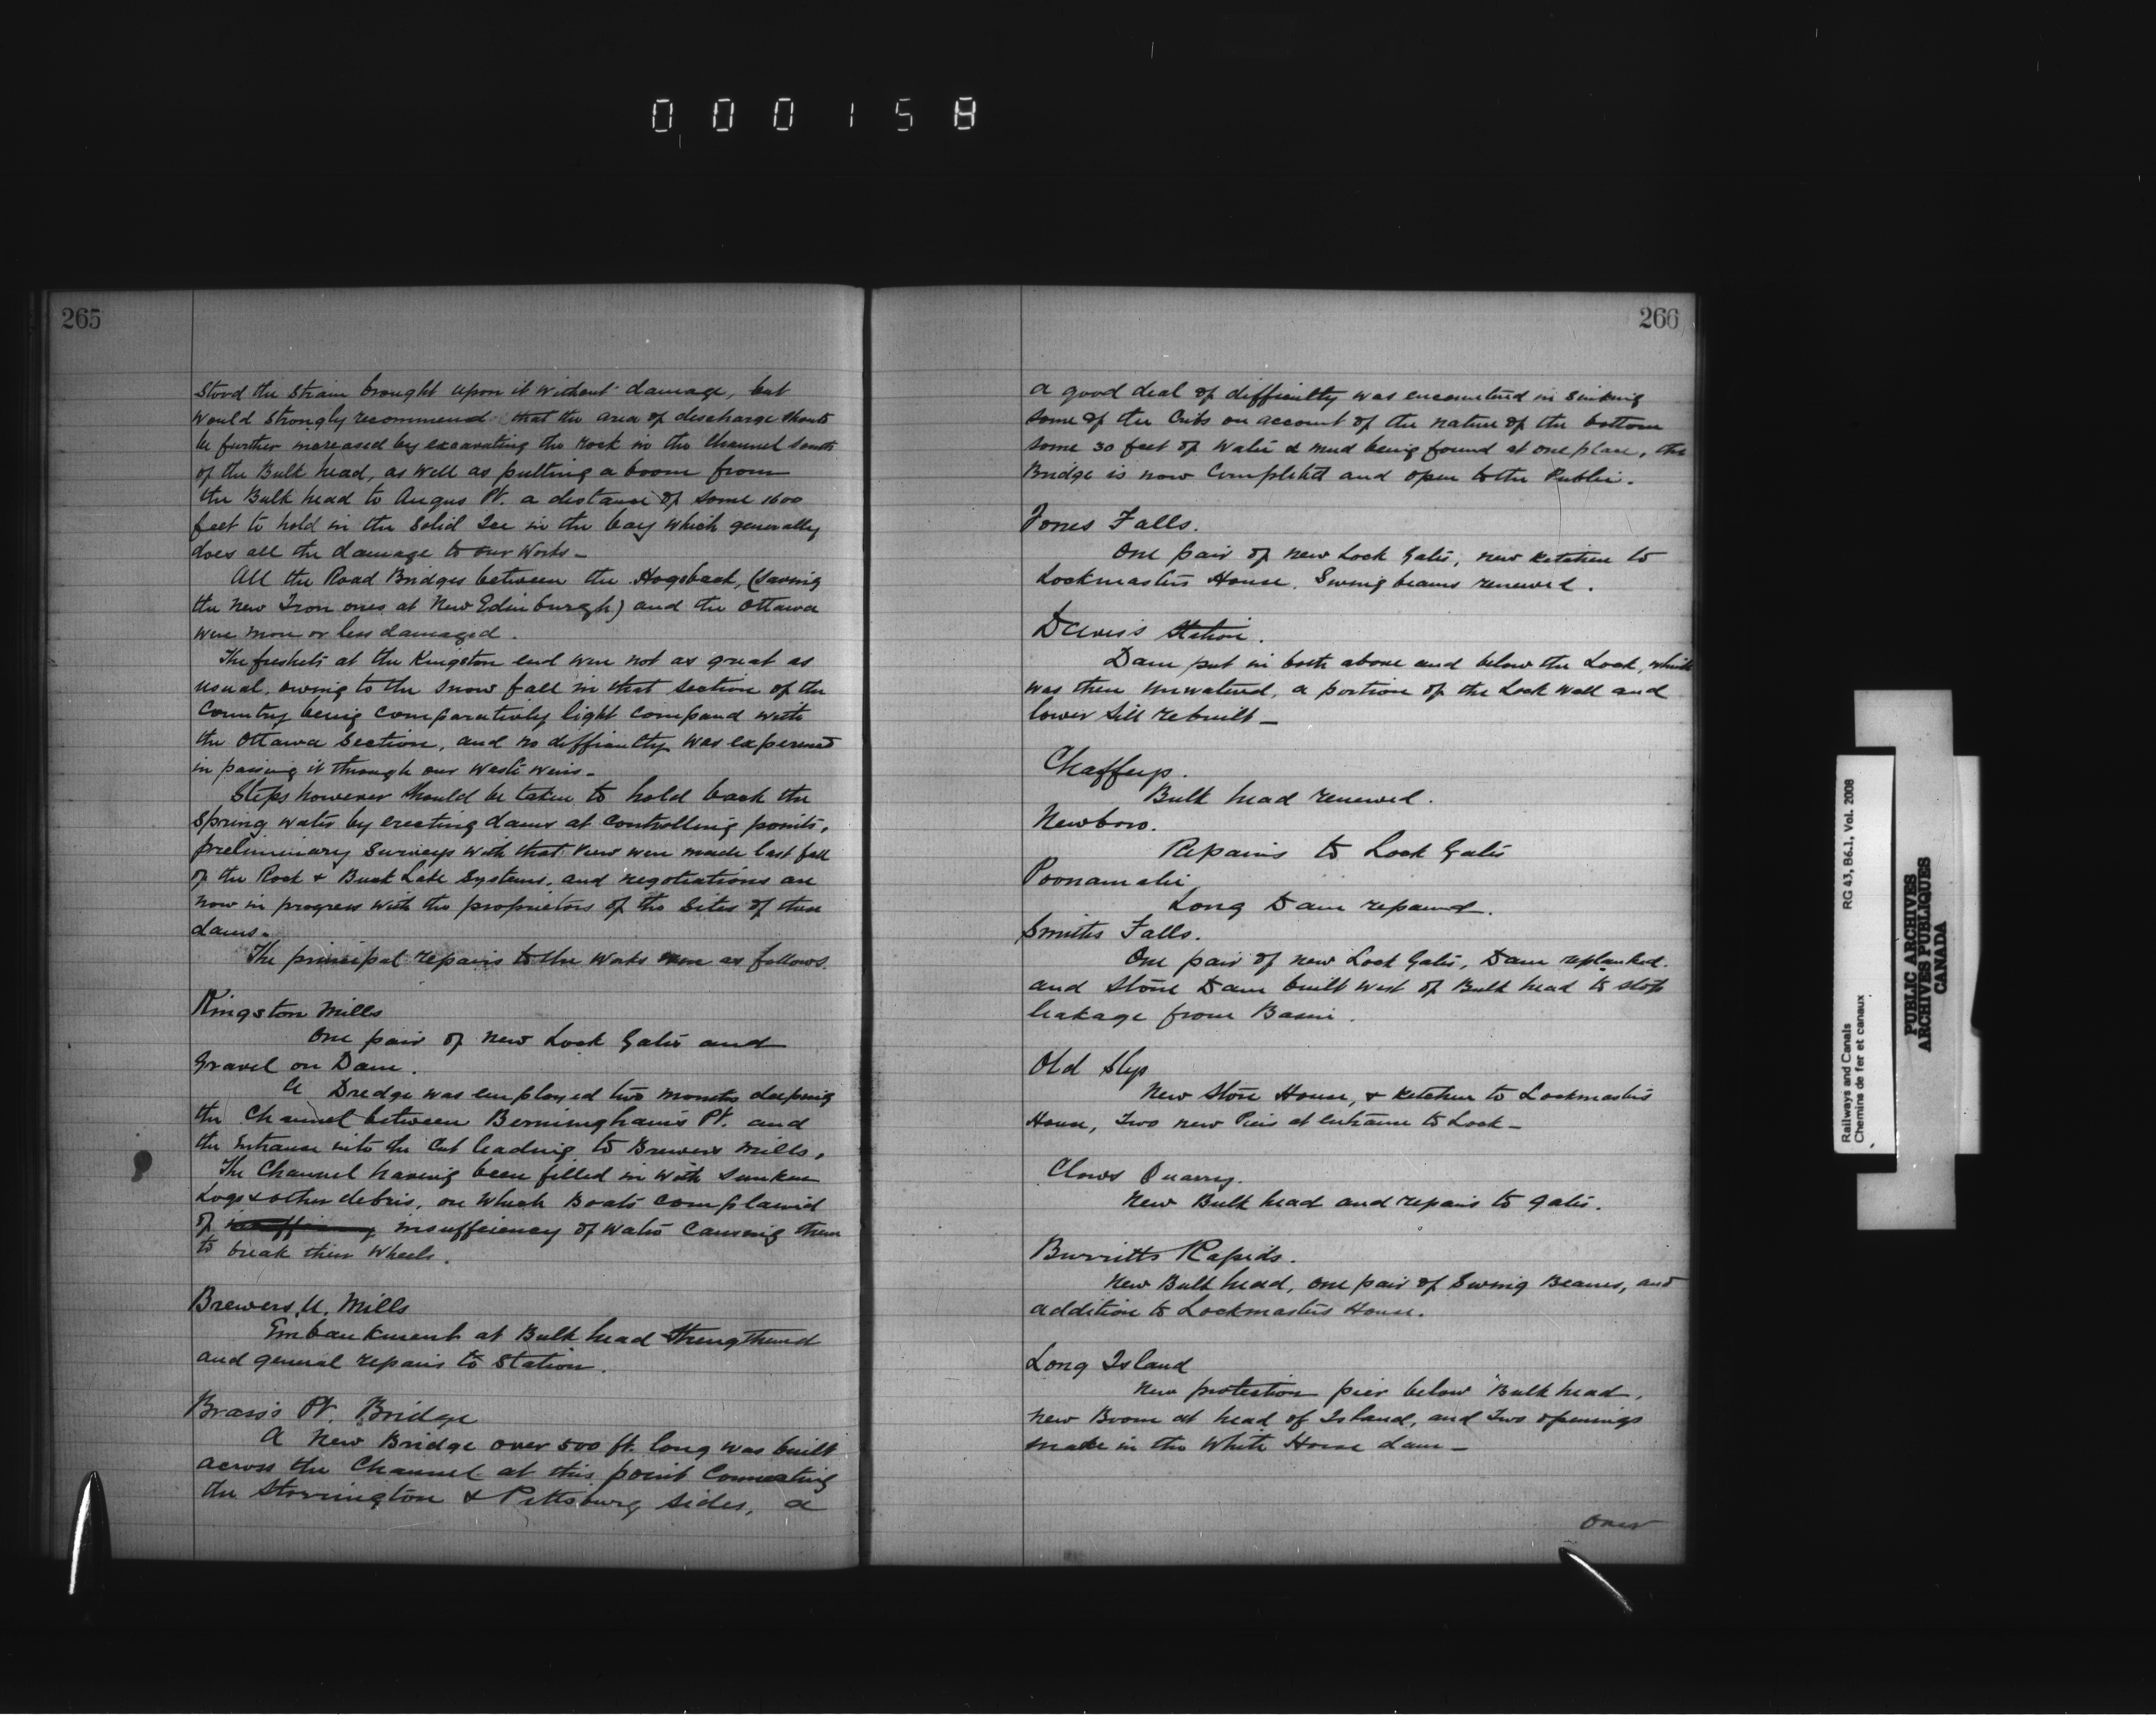 000158
265
Stood the Strain brought upon it without damage, but
would Strongly recommend that the area of discharge should
be further increased by excavating the rock in the Channel South
of the Bulk head, as well as putting a boom from
the Bulk head to Angus Pt. a distance of some 1600
feet to hold in the Solid Ice in the bay which generally
does all the damage to our Works_
All the Road Bridges between the Hogsback, (Saving
the New Iron ones at New Edinburgh) and the Ottawa
were more or less damaged.
The freshets at the Kingston end were not as great as
usual, owing to the Snow fall in that Section of the
Country being comparatively light compared with
the Ottawa Section, and no difficulty was experienced
in passing it through our Waste Weirs_
Steps however should be taken to hold back the
Spring water by erecting dams at controlling points,
preliminary Surveys with that view were made last fall
of the Rock & Buck Lake Systems, and negotiations are
now in progress with the proprietors of the Sites of these
dams.
The principal repairs to the Works were as follows.
Kingston Mills
One pair of new Lock Gates and
Gravel on Dam.
A Dredge was employed two months deepening
the Channel between Berminghams Pt. and
the Entrance into the Cut leading to Brewers Mills,
The Channel having been filled in with Sunken
Logs & other debris, on which Boats complained
of insufficiency insufficiency of Water Causing them
to break their Wheels.
Brewers U. Mills
Embankment at Bulk head Strengthened
and general repairs to Station.
Brass's Pt. Bridge
A New Bridge over 500 ft. long was built
across the Channel at this point Connecting
the Storrington & Pittsburg sides, a
266
a good deal of difficulty was encountered in Sinking
some of the Cribs on account of the nature of the bottom
some 30 feet of Water & mud being found at one place, the
Bridge is now Completed and open to the Public.
Jones Falls.
One pair of new Lock Gates, new Kitchen to
Lockmasters House, Swing beams renewed.
Davis's Station.
Dam put in both above and below the Lock, which
was then Unwatered, a portion of the Lock Wall and
lower Sill rebuilt_
Chaffeys.
Bulk head renewed.
Newboro.
Repairs to Lock Gates
Poonamalie
Long Dam repaired.
Smiths Falls.
One pair of new Lock Gates, Dam replanked.
and Stone Dam built West of Bulk head to Stop
leakage from Basin.
Old Slys
New Store House, & Kitchen to Lockmasters
House, Two new Piers at Entrance to Lock_
Clows Quarry.
New Bulk head and repairs to gates.
Burritts Rapids.
New Bulk head, one pair of Swing Beams, and
addition to Lockmasters House.
Long Island
New protection pier below Bulk head,
new Boom at head of Island, and Two openings
made in the White Horse dam_
Over
RG 43, B6.1, Vol. 2008
Railways and Canals
Chemins de fer et canaux
PUBLIC ARCHIVES
ARCHIVES PUBLIQUES
CANADA